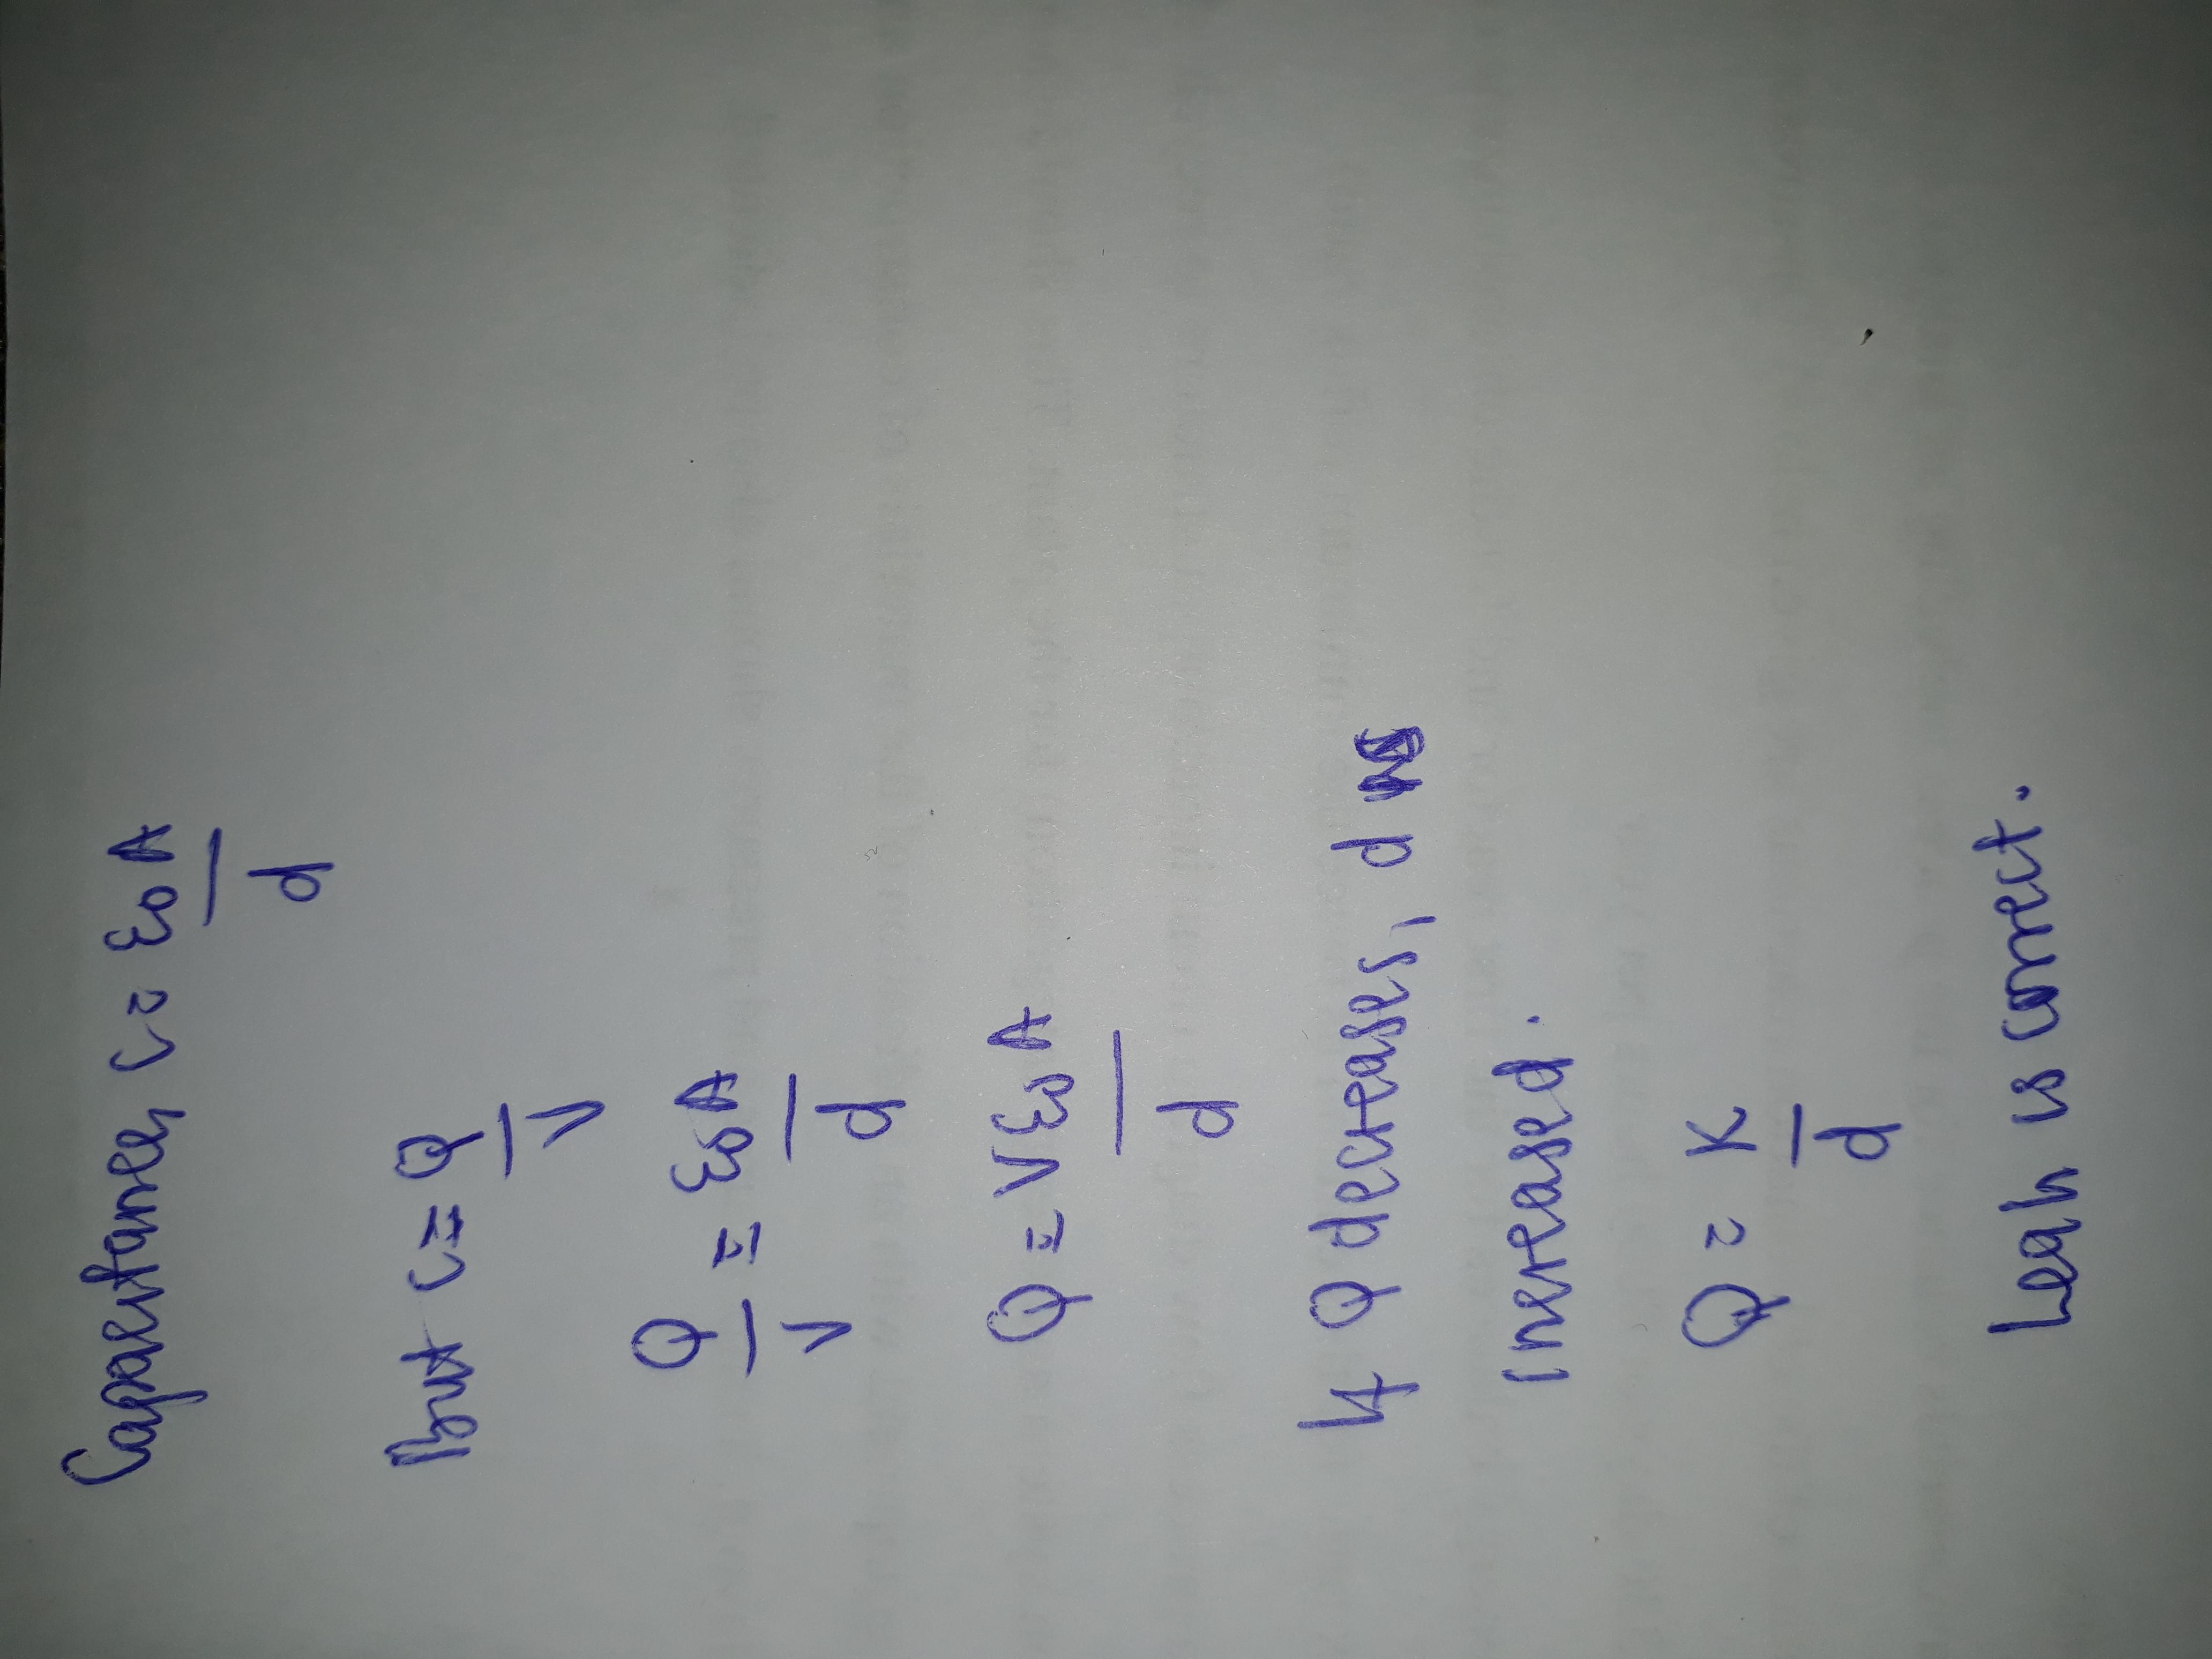 Capacitance, C = ε₀A
d
But C = Q
V
Q = ε₀A
V d
Q = Vε₀A
d
If Q decreases, d is
increased.
Q = K
d
Leah is correct.